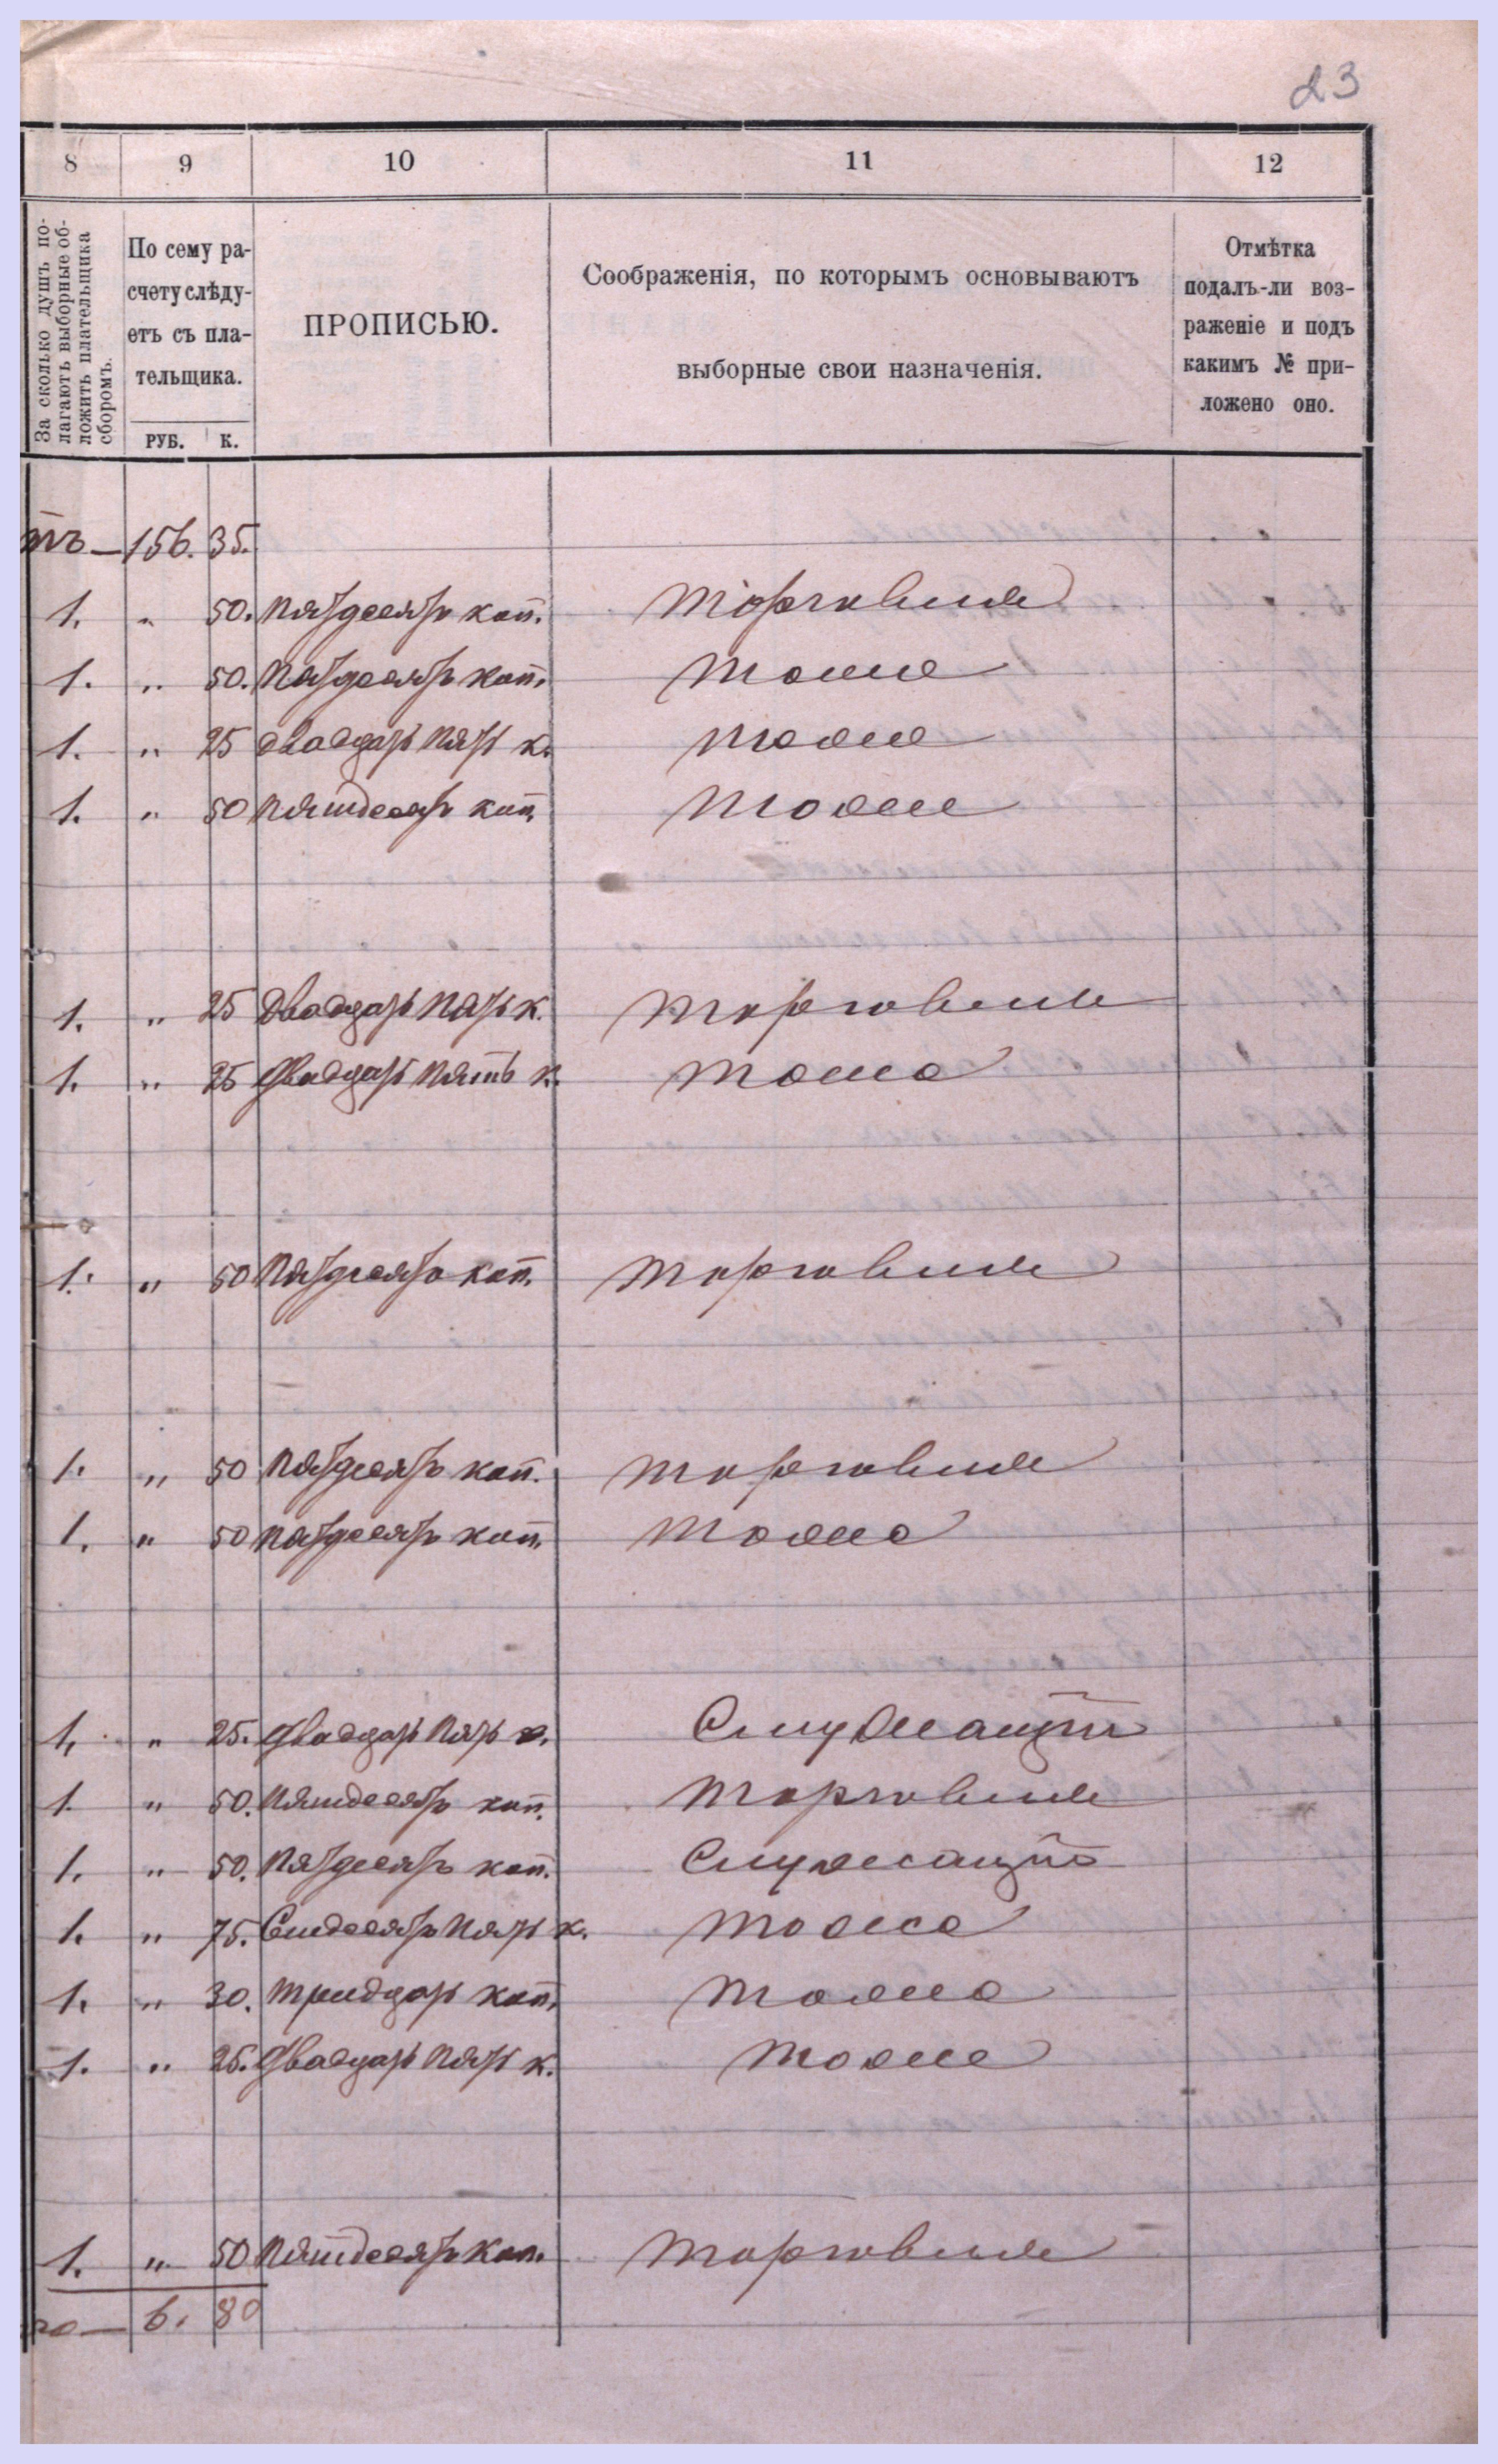 23
8 9 10 11 12
За сколько душъ по-
лагаютъ выборные об-
ложить плательщика
сборомъ.
По сему ра-
счету слѣду-
етъ съ пла-
тельщика.
РУБ. К.
ПРОПИСЬЮ.
Соображенія, по которымъ основываютъ
выборные свои назначенія.
Отмѣтка
подалъ-ли воз-
раженіе и подъ
какимъ № при-
ложено оно.
тъ — 156. 35.
1. „ 50. Пятдесятъ коп. Торговлия
1. „ 50. Пятдесятъ коп. тоже
1. „ 25 двадцать пять к. тоже
1. „ 50 Пятдесятъ коп. тоже
1. „ 25 Двадцать пять к. торговлия
1. „ 25 Двадцать пять к. тоже
1. „ 50 Пятдесятъ коп. торговлия
1. „ 50 Пятдесятъ коп. торговлия
1. „ 50 пятдесятъ коп. тоже
1. „ 25. Двадцать пять к. Служащій
1. „ 50. Пятдесятъ коп. торговлия
1. „ 50. Пятдесятъ коп. Служащій
1. „ 75. Семдесятъ пять к. тоже
1. „ 30. Тридцать коп. тоже
1. „ 25. Двадцать пять к. тоже
1. „ 50 Пятдесятъ коп. торговлия
го — 6. 80